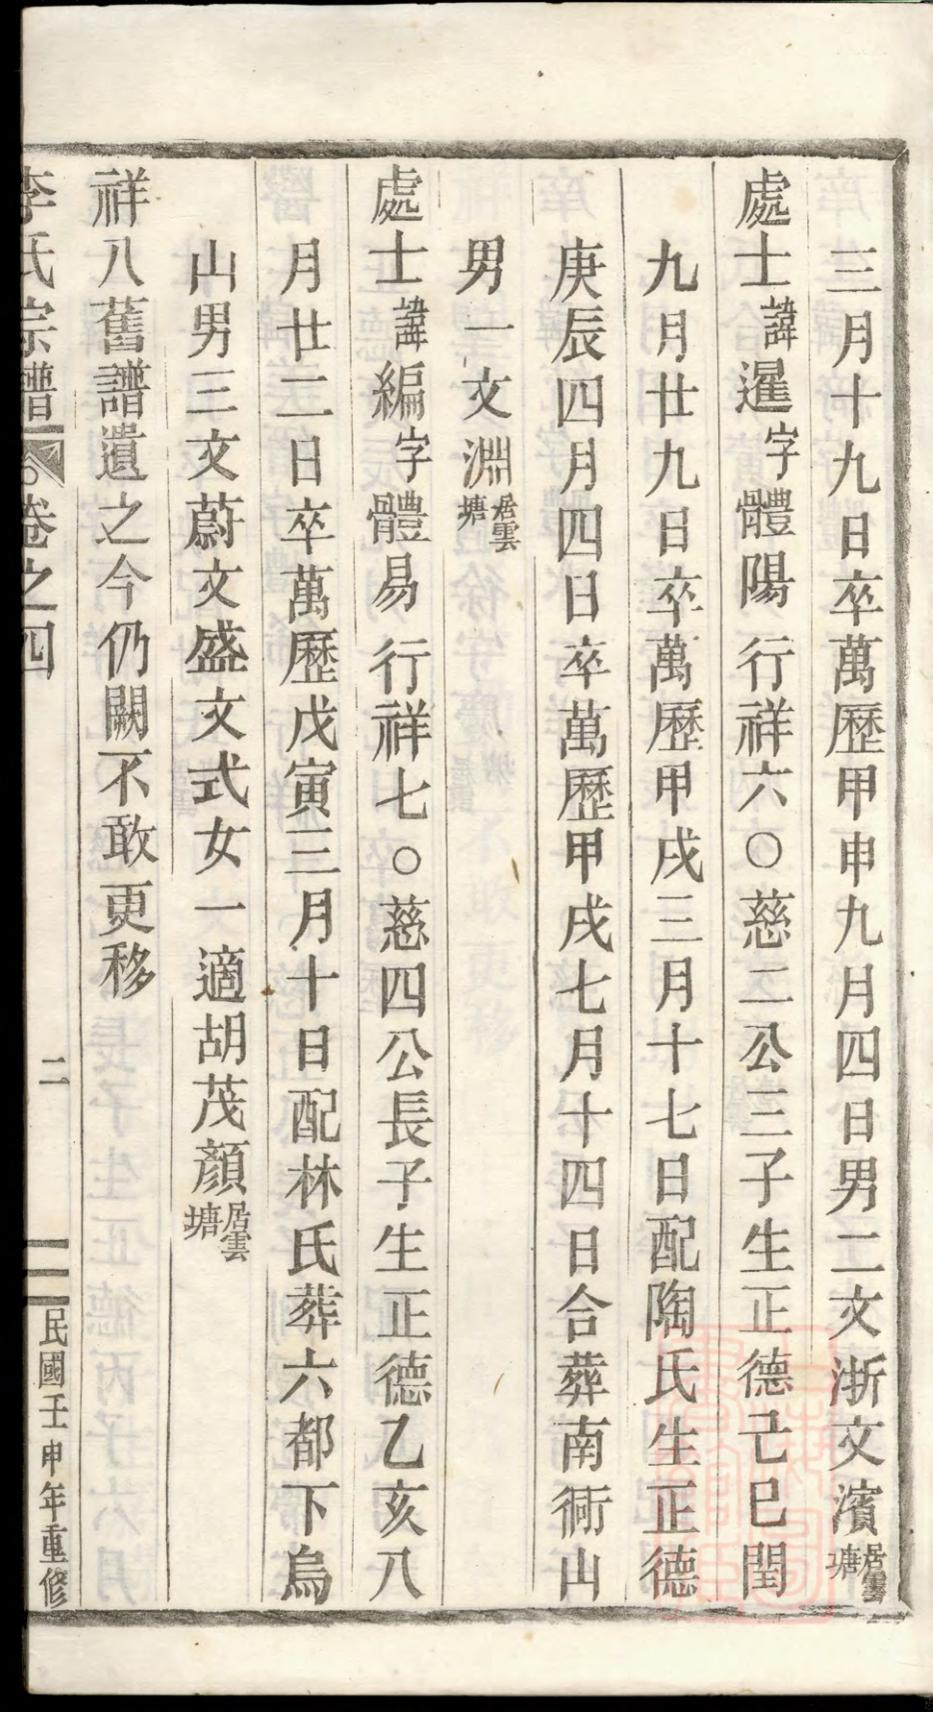 三月十九日卒萬歷甲申九月四日男二文浙文濱居雲塘
處士諱暹字體陽行祥六○慈二公三子生正德己巳閏
九月廿九日卒萬歷甲戌三月十七日配陶氏生正德
庚辰四月四日卒萬歷甲戌七月十四日合葬南衕山
男一文淵居雲塘
處士諱編字體易行祥七○慈四公長子生正德乙亥八
月廿二日卒萬歷戊寅三月十日配林氏葬六都下烏
山男三文蔚文盛文式女一適胡茂顏居雲塘
祥八舊譜遺之今仍闕不敢更移
李氏宗譜 卷之四 二 民國壬申年重修